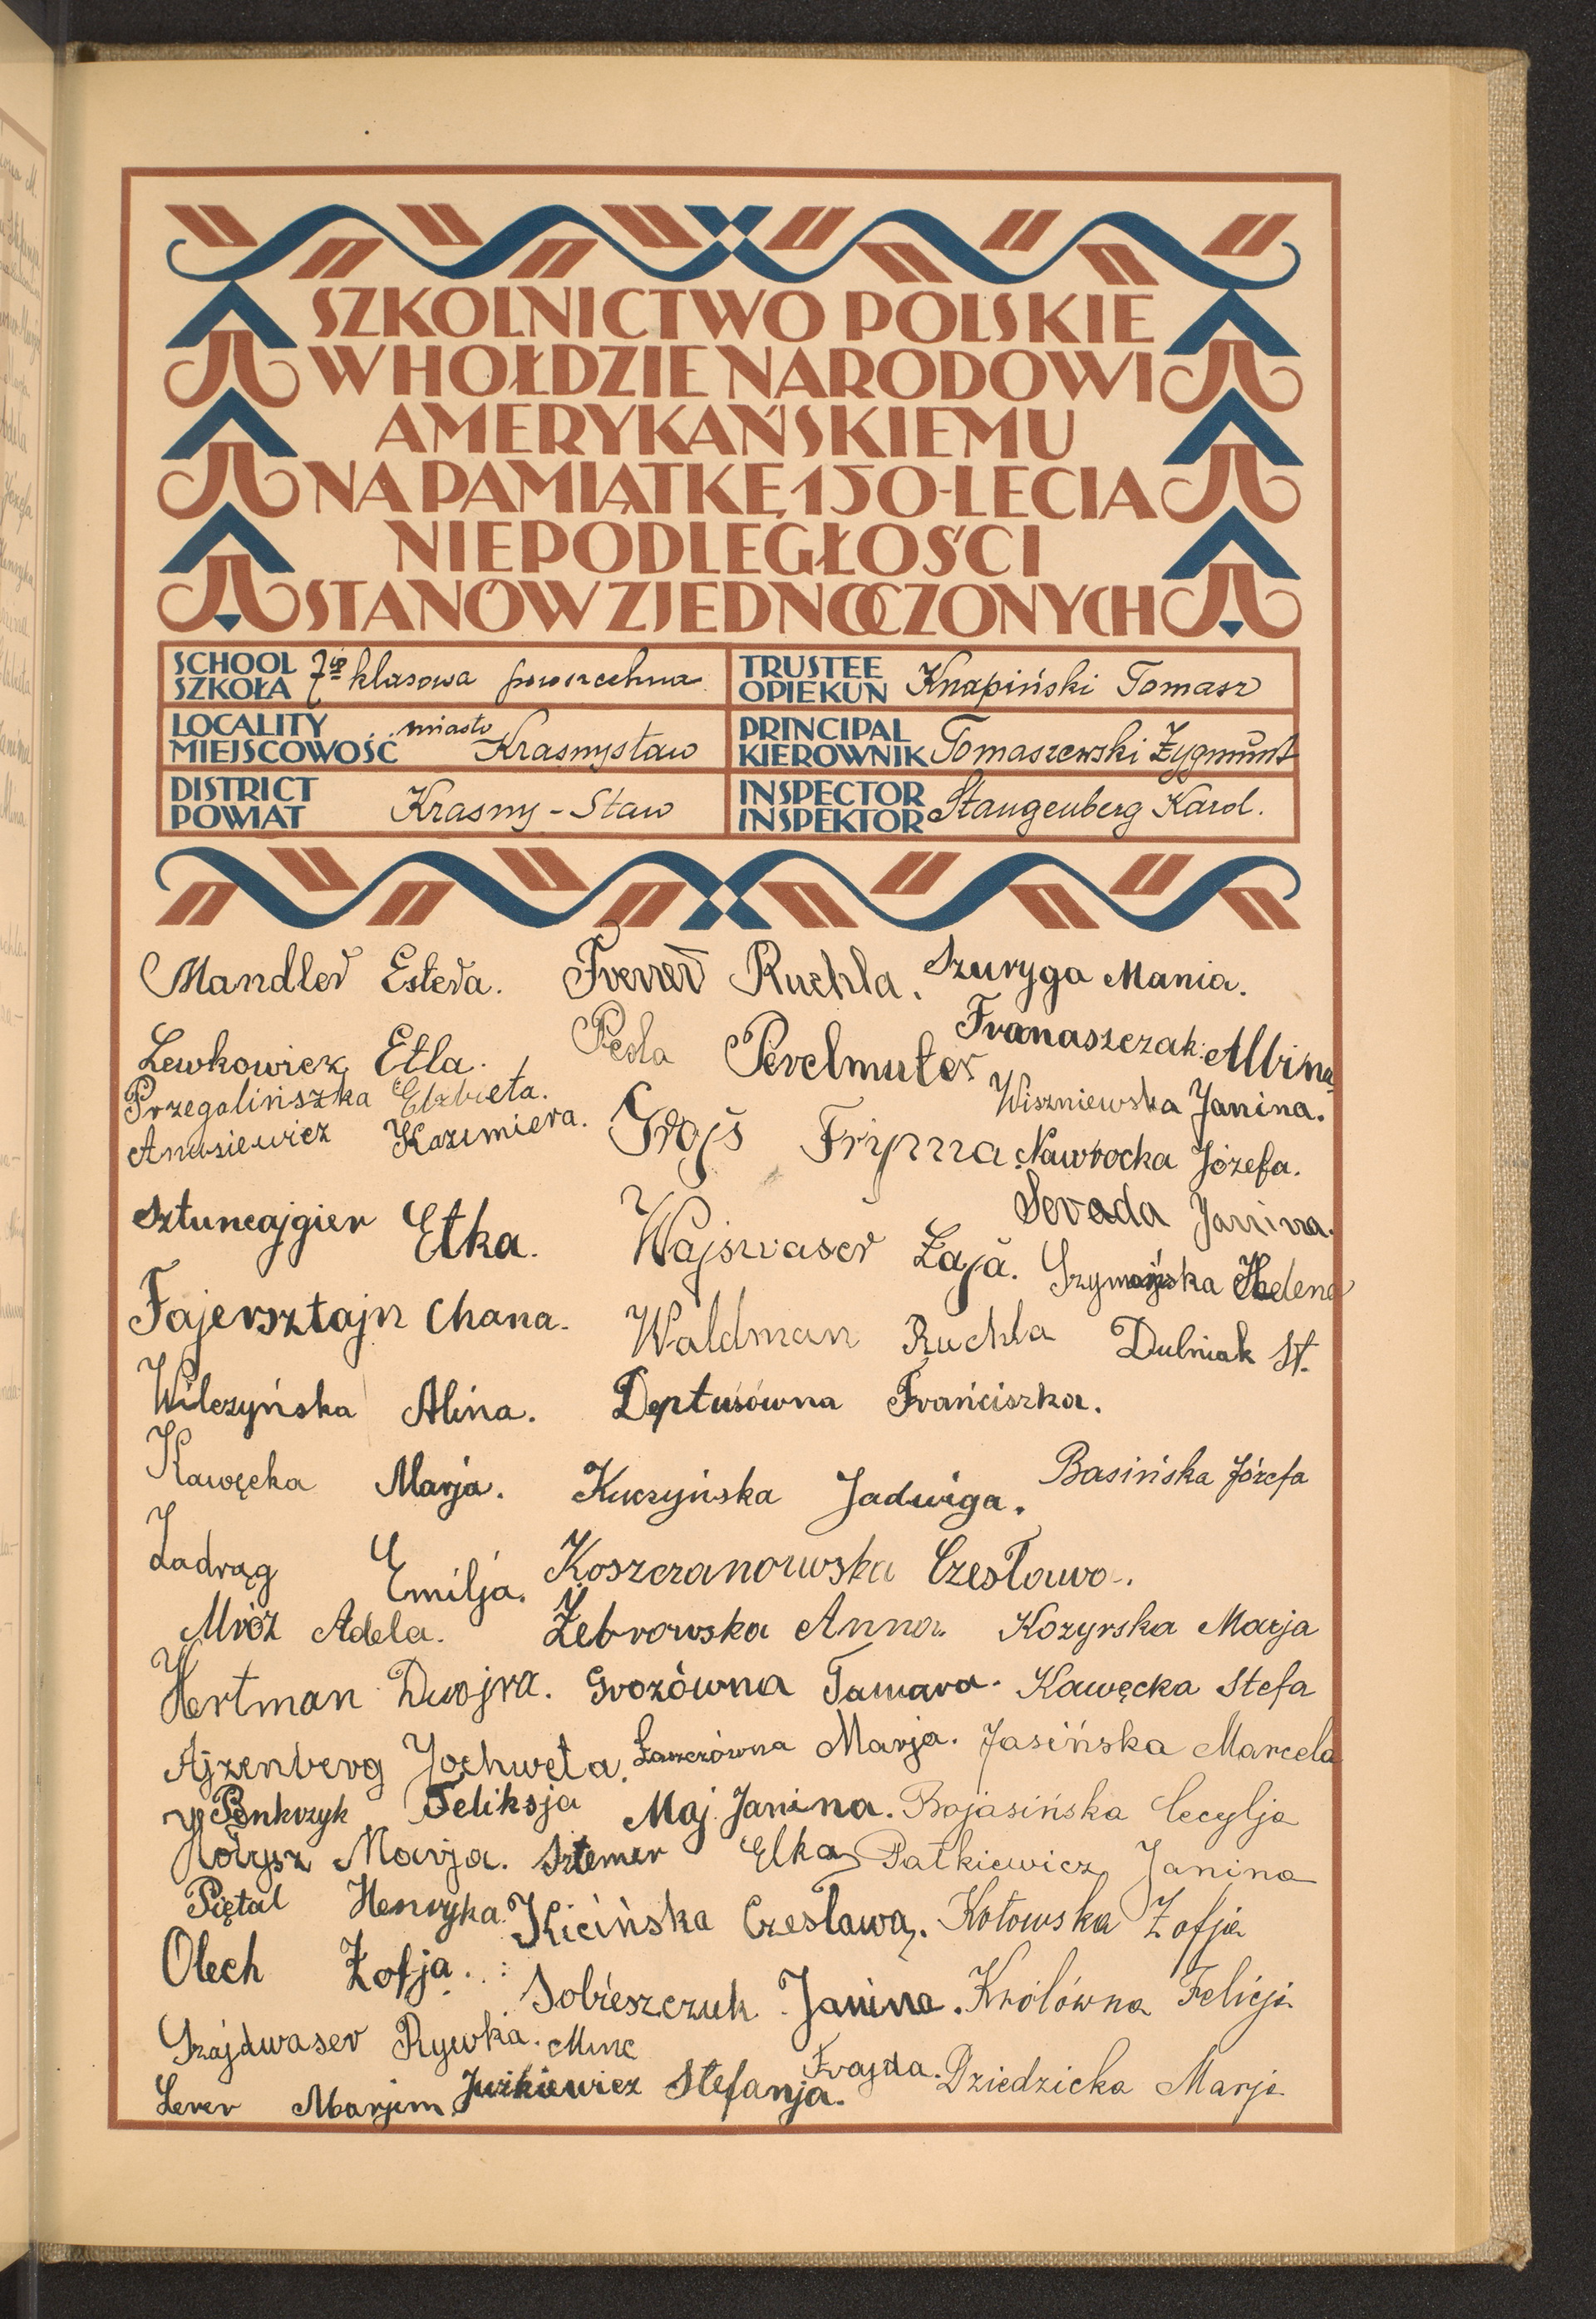 SZKOLNICTWO POLSKIE
W HOŁDZIE NARODOWI
AMERYKAŃSKIEMU
NA PAMIĄTKĘ 150-LECIA
NIEPODLEGŁOŚCI
STANÓW ZJEDNOCZONYCH
SCHOOL
SZKOŁA 7io klasowa powszechna
TRUSTEE
OPIEKUN Knapiński Tomasz
LOCALITY
MIEJSCOWOŚĆ miasto Krasnystaw
PRINCIPAL
KIEROWNIK Tomaszewski Zygmunt
DISTRICT
POWIAT Krasny-Staw
INSPECTOR
INSPEKTOR Stangenberg Karol.
Mandler Estera. Ruchla. Szuryga Mania.
Lewkowicz Etla. Pesla Perelmuter Franaszczak Albina
Przegalińszka Elżbieta. Wiszniewska Janina.
Kazimiera. Grojs Fryma Nawrocka Józefa.
Sztuncajgier Etka. Wajswaser Łaja. Serada Janina.
Szymańska Helena
Fajersztajn Chana. Waldman Ruchla Dulniak St.
Wilczyńska Alina. Deptusówna Franciszka.
Kawęcka Marja. Kuczyńska Jadwiga. Basińska Józefa
Zadrąg Emilja. Koszczanowska Czesława.
Mróz Adela. Żebrowska Anna. Kozyrska Marja
Hertman Dwojra. Grozówna Tamara. Kawęcka Stefa
Ajzenberg Jochweta. Łaszczówna Marja. Jasińska Marcela
Feliksja Maj Janina. Bojasińska Cecylja
Hołysz Marja. Sztemer Elka Patkiewicz Janina
Piętal Henryka. Kicińska Czesława. Kotowska Zofja
Olech Zofja. Sobieszczuk Janina. Królówna Felicja
Szajdwaser Rywka. Minc Frajda.
Lerer Marjem Juśkiewicz Stefanja. Dziedzicka Marja